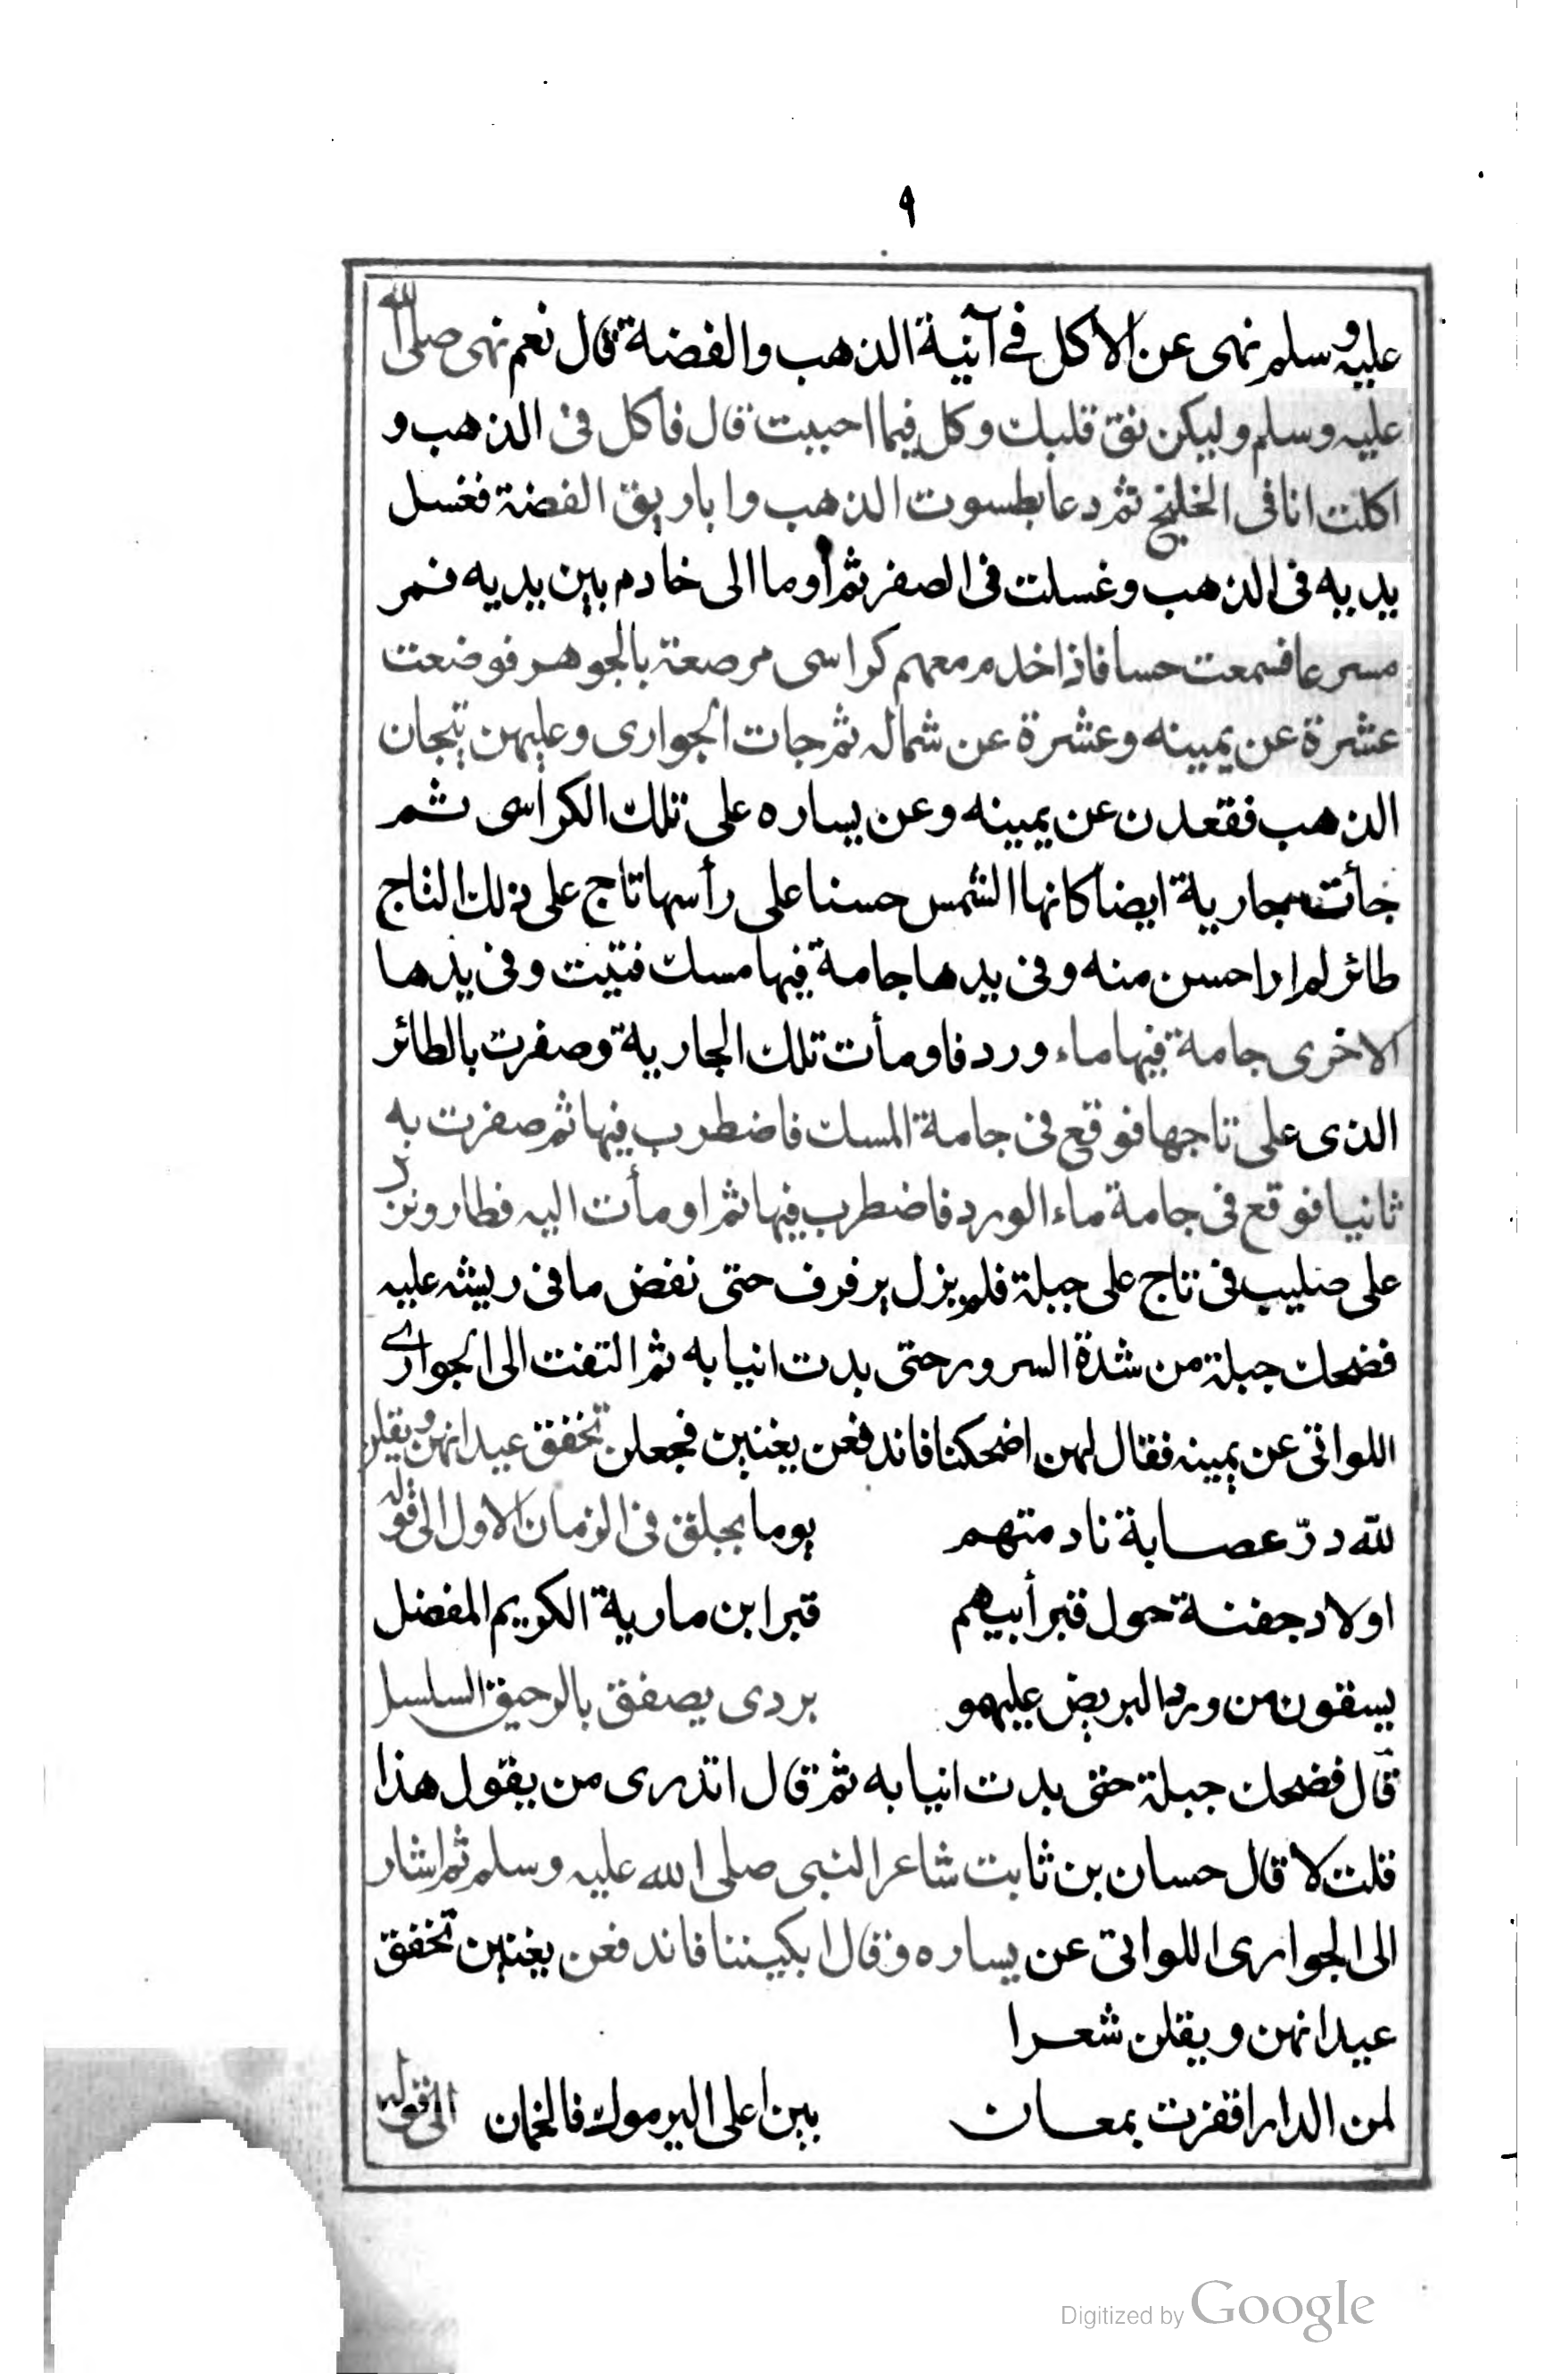 ٩
عليه وسلم نهى عن الاكل فے آنية الذهب والفضة قال نعم نهى صلى الله
عليه وسلم وليكن نق قلبك وكل فيما احببت قال فاكل فى الذهب و
اكلت انا فى الخلنج ثم دعا بطسوت الذهب واباريق الفضة فغسل
يديه فى الذهب وغسلت فى الصفر ثم أوما الى خادم بين يديه فمر
مسرعا فسمعت حسا فاذا خدم معهم كراسى مرصعة بالجوهر فوضعت
عشرة عن يمينه وعشرة عن شماله ثم جات الجوارى وعليهن تيجان
الذهب فقعدن عن يمينه وعن يساره على تلك الكراسى ثم
جأت جارية ايضا كانها الشمس حسنا على رأسها تاج على ذلك التاج
طائر لم ار احسن منه وفى يدها جامة فيها مسك فتيت وفى يدها
الاخرى جامة فيها ماء ورد فاومأت تلك الجارية وصفرت بالطائر
الذى على تاجها فوقع فى جامة المسك فاضطرب فيها ثم صفرت به
ثانيا فوقع فى جامة ماء الورد فاضطرب فيها ثم اومأت اليه فطار ونزل
على صليب فى تاج على جبلة فلم يزل يرفرف حتى نفض ما فى ريشه عليه
فضحك جبلة من شدة السرور حتى بدت انيابه ثم التفت الى الجوارے
اللواتى عن يمينه فقال لهن اضحكننا فاندفعن يغنين فجعلن تخفق عيدانهن ويقلن
لله درّ عصابة نادمتهم يوما بجلق فى الزمان الاول الى قوله
اولاد جفنة حول قبر أبيهم قبر ابن مارية الكريم المفضل
يسقون من ورد البريض عليهمو بردى يصفق بالرحيق السلسل
قال فضحك جبلة حتى بدت انيابه ثم قال اتدرى من يقول هذا
قلت لا قال حسان بن ثابت شاعر النبى صلى الله عليه وسلم ثم اشار
الى الجوارى اللواتى عن يساره وقال ابكيننا فاندفعن يغنين تخفق
عيدانهن ويقلن شعرا
لمن الدار اقفرت بمعان بين اعلى اليرموك فالخمان الى قوله
Digitized by Google